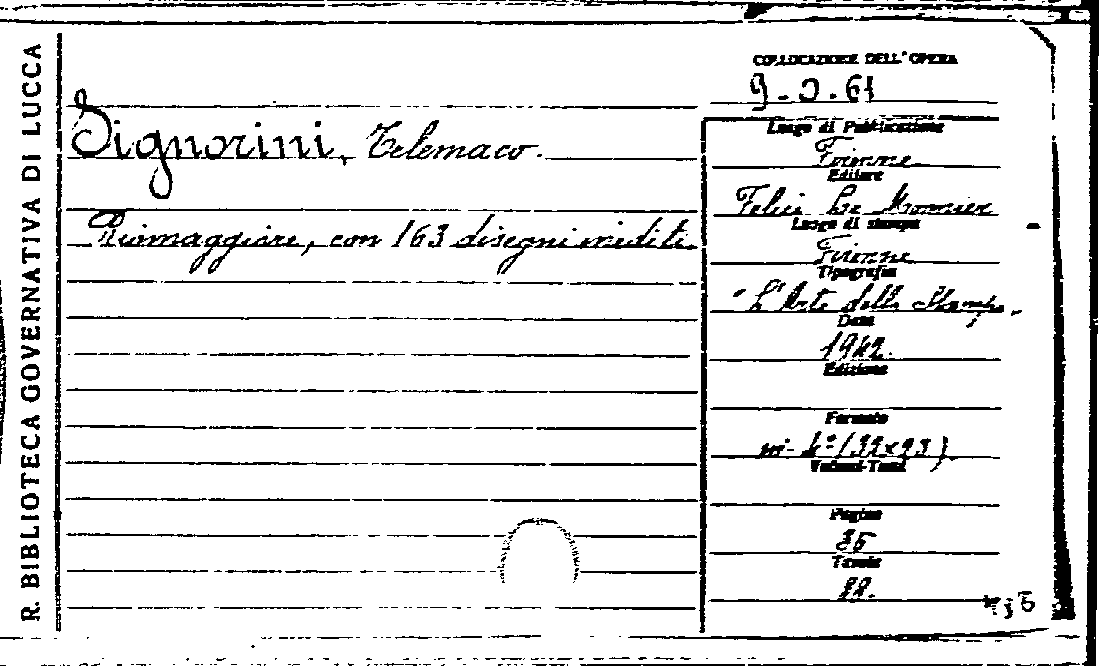 R. BIBLIOTECA GOVERNATIVA DI LUCCA
Signorini, Telemaco.
Riomaggiore, con 163 disegni inediti.
COLLOCAZIONE DELL'OPERA
Luogo di Pubblicazione
Firenne
Editore
Felici Le Monnier
Luogo di stampa
Firenne
Tipografia
"L'Arte della Stampa"
Data
1942.
Edizione
Formato
in- 4º (32x23)
Volumi-Tomi
Pagine
Tavole